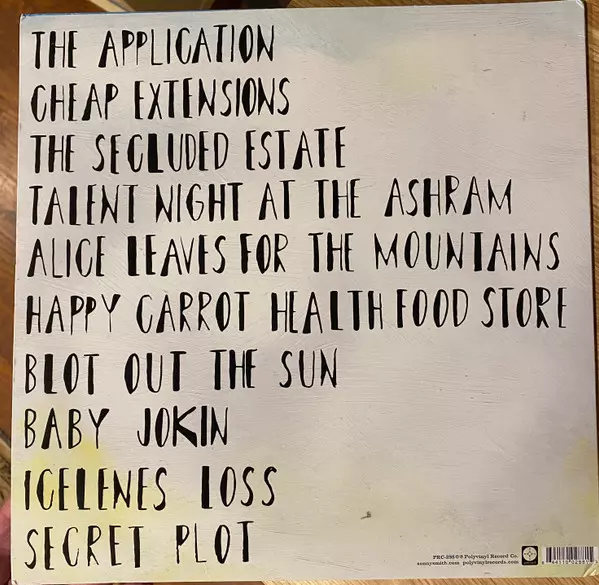 THE APPLICATION
CHEAP EXTENSIONS
THE SECLUDED ESTATE
TALENT NIGHT AT THE ASHRAM
ALICE LEAVES FOR THE MOUNTAINS
HAPPY CARROT HEALTH FOOD STORE
BLOT OUT THE SUN
BABY JOKIN
ICELENES LOSS
SECRET PLOT
Polyvinyl Record Co.
sonnysmith.com polyvinylrecords.com